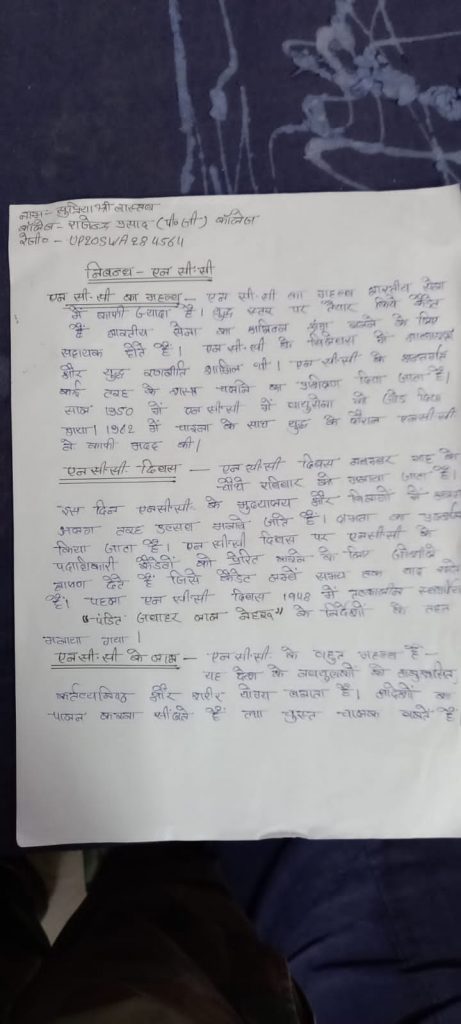 नाम- सुप्रिया श्रीवास्तव
कॉलेज- राजेन्द्र प्रसाद (पी०जी०) कॉलेज
रेजी० - UP20SWA284564
निबन्ध - एन॰सी॰सी
एन॰सी॰सी का महत्व - एन॰सी॰सी का महत्व भारतीय सेना
में काफी ज्यादा है। युद्ध स्तर पर तैयार किये कैडेट
हैं भारतीय सेना का अभिन्न अंग बनने के लिए
सहायक होते है। एन॰सी॰सी के
और युद्ध रणनीति शामिल थी। एन॰सी॰सी के अन्तर्गत
कई तरह के शस्त्र चलाने का प्रशिक्षण दिया जाता है।
साल 1950 में एन॰सी॰सी में वायुसेना को जोड़ दिया
गया। 1962 में चाइना के साथ युद्ध के दौरान एनसीसी
ने काफी मदद की।
एन॰सी॰सी दिवस - एन॰सी॰सी दिवस नवम्बर माह के
चौथे रविवार को मनाया जाता है।
इस दिन एनसीसी के मुख्यालय और में अलग
अलग तरह उत्सव मनाये जाते है।
किया जाता है। एन॰सी॰सी दिवस पर एनसीसी के
पदाधिकारी कैडेटों को प्रेरित करने के लिए जोशीले
भाषण देते हैं जिसे कैडेट लम्बे समय तक याद रखते
हैं। पहला एन॰सी॰सी दिवस 1948 में तत्कालीन
"पंडित जवाहर लाल नेहरू" के निर्देशों के तहत
मनाया गया।
एन॰सी॰सी के लाभ - एन॰सी॰सी के बहुत महत्व है -
यह देश के नवयुवकों को अनुशासित,
कर्तव्यनिष्ठ और शरीर योग्य बनाता है। आदेशों का
पालन करना सीखते हैं तथा चुस्त चालक बनते हैं